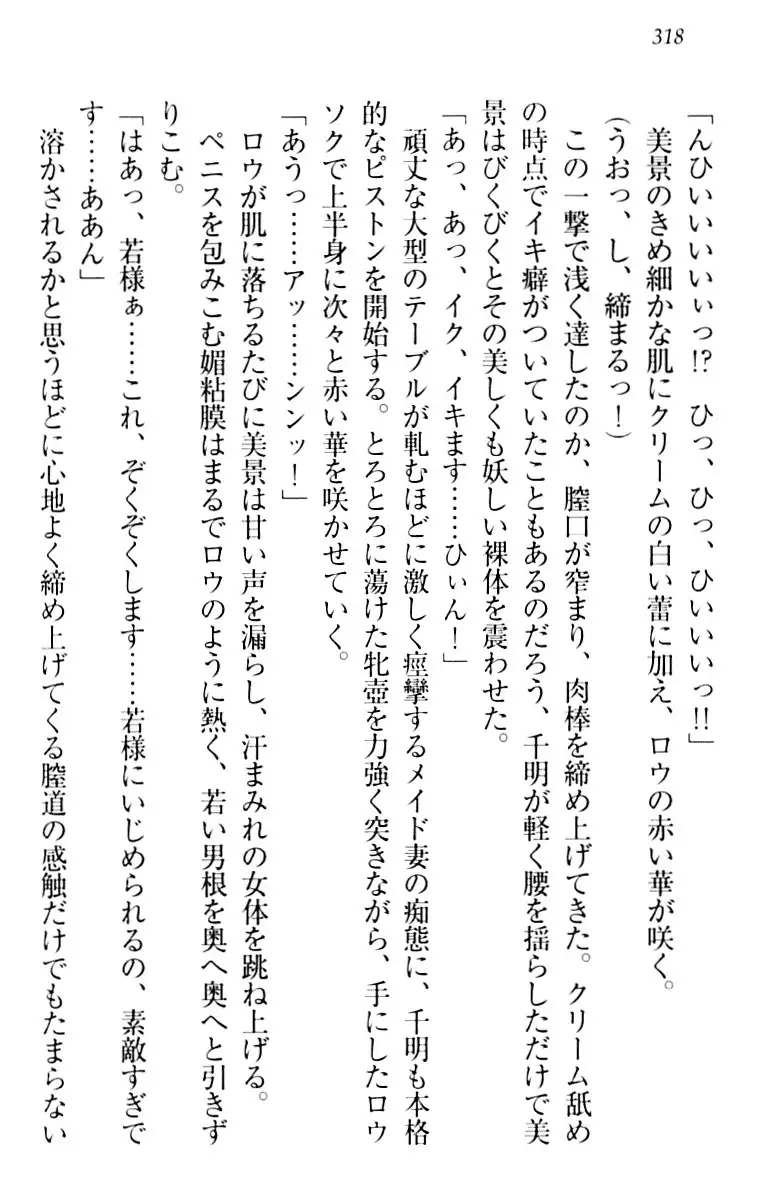 318
「んひいいいいぃっ!?　ひっ、ひっ、ひいいいっ!!」
　美景のきめ細かな肌にクリームの白い蕾に加え、ロウの赤い華が咲く。
（うおっ、し、締まるっ！）
　この一撃で浅く達したのか、膣口が窄まり、肉棒を締め上げてきた。クリーム舐め
の時点でイキ癖がついていたこともあるのだろう、千明が軽く腰を揺らしただけで美
景はびくびくとその美しくも妖しい裸体を震わせた。
「あっ、あっ、イク、イキます……ひぃん！」
　頑丈な大型のテーブルが軋むほどに激しく痙攣するメイド妻の痴態に、千明も本格
的なピストンを開始する。とろとろに蕩けた牝壺を力強く突きながら、手にしたロウ
ソクで上半身に次々と赤い華を咲かせていく。
「あうっ……アッ……ンンッ！」
　ロウが肌に落ちるたびに美景は甘い声を漏らし、汗まみれの女体を跳ね上げる。
　ペニスを包みこむ媚粘膜はまるでロウのように熱く、若い男根を奥へ奥へと引きず
りこむ。
「はあっ、若様ぁ……これ、ぞくぞくします……若様にいじめられるの、素敵すぎで
す……ああん」
　溶かされるかと思うほどに心地よく締め上げてくる膣道の感触だけでもたまらない